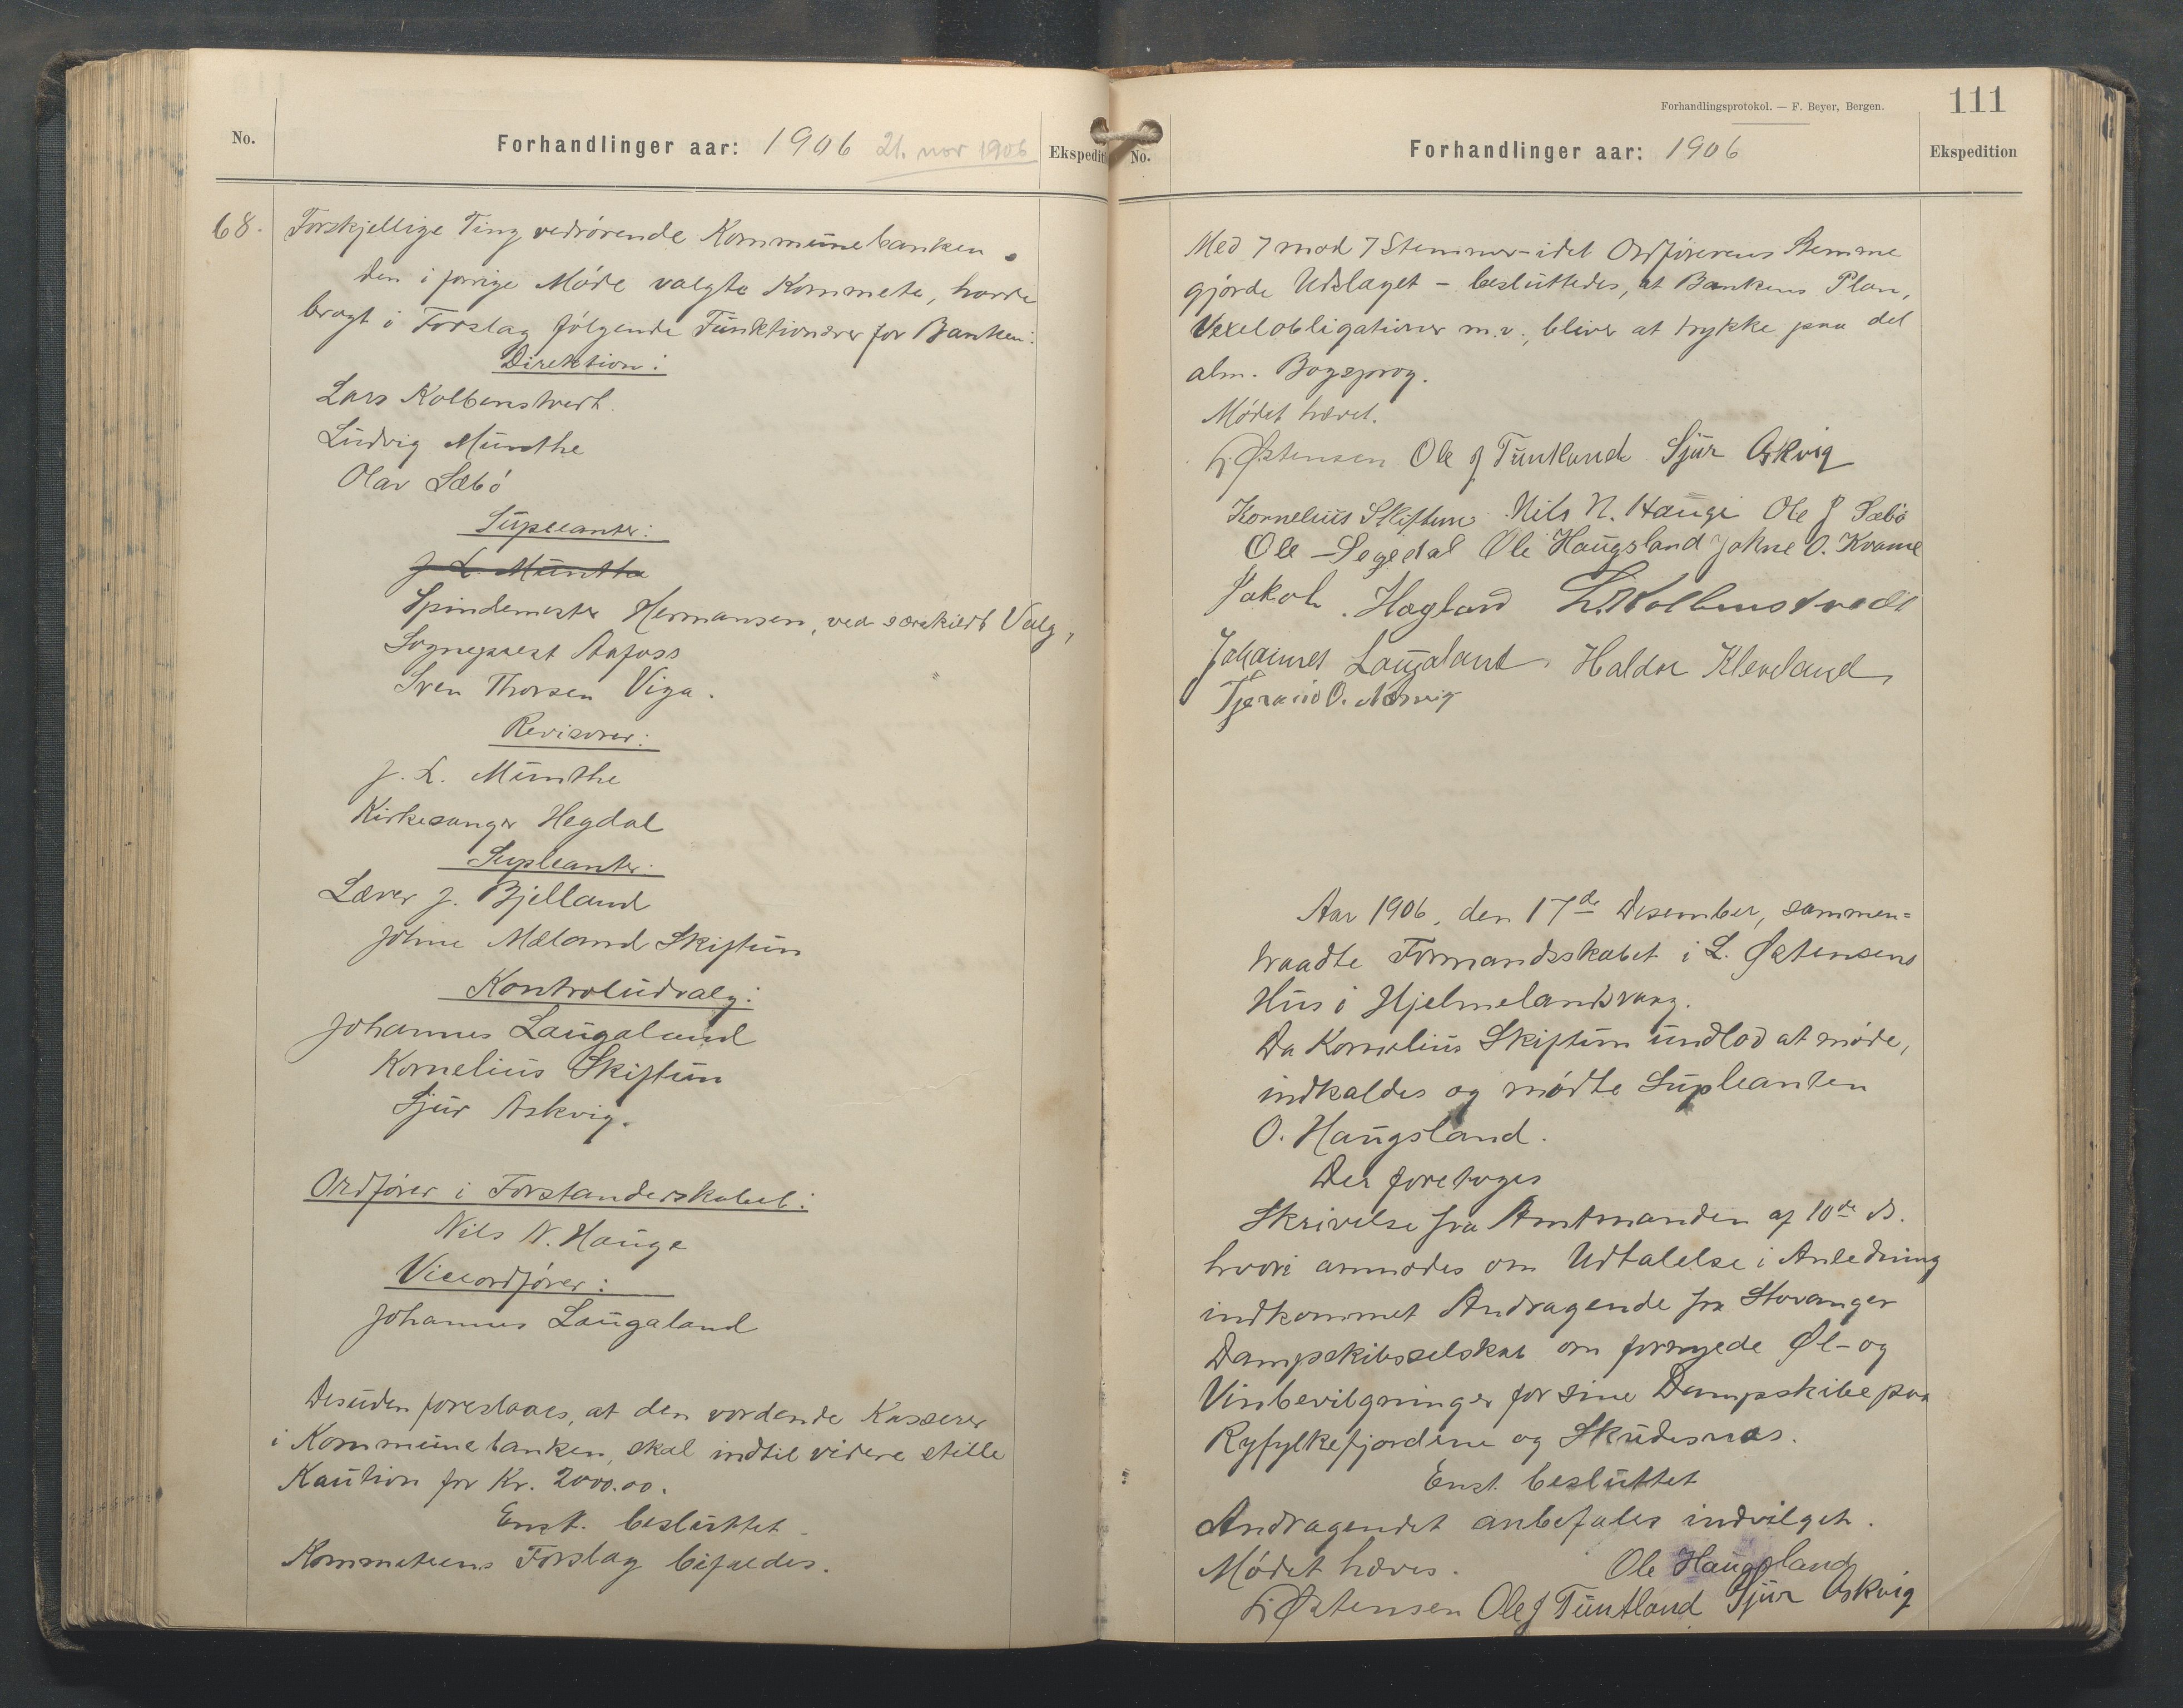 No.
Forhandlinger aar: 1906 21. nov 1906
Ekspedit
68.
Forskjellige Ting vedrørende Kommunebanken.
Den i forrige Møde valgte Kommete, havde
bragt i Forslag følgende Funktionærer for Banken:
Direktion:
Lars Kolbenstvedt.
Ludvig Munthe
Olav Sæbø
Supleanter:
J. L. Munthe
Spindemester Hermansen, ved særskildt Valg,
Sogneprest Aafoss
Sven Thorsen Viga.
Revisorer:
J. L. Munthe
Kirkesanger Hegdal
Supleanter:
Lærer J. Bjelland
Johne Mæland Skiftun
Kontroludvalg:
Johannes Laugaland
Kornelius Skiftun
Sjur Askvig.
Ordfører i Forstanderskabet:
Nils N. Hauge
Viceordfører:
Johannes Laugaland
Desuden foreslaaes, at den vordende Kasserer
i Kommunebanken, skal indtil videre stille
Kaution for Kr. 2000.00.
Enst. besluttet
Kommeteens Forslag bifaldes.
Forhandlingsprotokol. — F. Beyer, Bergen.
111
No.
Forhandlinger aar: 1906
Ekspedition
Med 7 mod 7 Stemmer - idet Ordførerens Stemme
gjorde Udslaget - besluttedes, at Bankens Plan,
Vexelobligationer m.v., bliver at trykke paa det
alm. Bogsprog.
Mødet hævet.
L. Østensen Ole J Tuntland Sjur Askvig
Kornelius Skiftun Nils N. Hauge Ole J Sæbø
Ole Segedal Ole Haugsland Johne O. Kvame
Jakob Hagland L. Kolbenstvedt
Johannes Laugaland. Haldor Kleveland,
O.
Aar 1906, den 17de Desember, sammen=
traadte Formandsskabet i L. Østensens
Hus i Hjelmelandsvaag.
Da Kornelius Skiftun undlod at møde,
indkaldes og mødte Supleanten
O. Haugsland.
Der foretoges
Skrivelse fra Amtmanden af 10de ds.
hvori anmodes om Udtalelse i Anledning
indkommet Andragende fra Stavanger
Dampskibsselskab om fornyede Øl- og
Vinbevilgninger for sine Dampskibe paa
Ryfylkefjordene og Skudesnæs.
Enst. besluttet
Andragendet anbefales indvilget.
Mødet hæves. Ole Haugsland
L. Østensen Ole J Tuntland Sjur Askvig